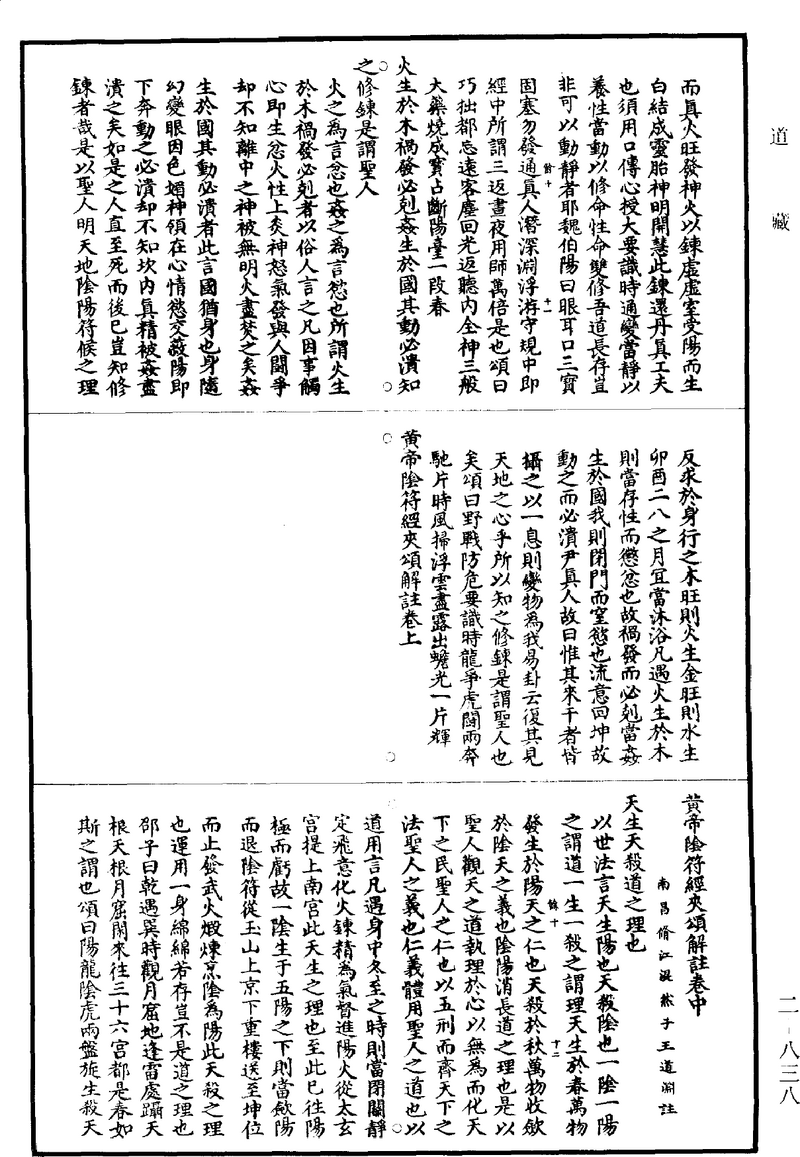 道藏
而真火旺發神火以鍊虛虛室受陽而生
白結成靈胎神明開慧此鍊還丹真工夫
也須用口傳心授大要識時通變當靜以
養性當動以修命性命雙修吾道長存豈
非可以動靜者耶魏伯陽曰眼耳口三寶
固塞勿發通真人潛深淵浮游守規中即
經中所謂三返晝夜用師萬倍是也頌曰
巧拙都忘遠客塵回光返聽內全神三般
大藥燒成寶占斷陽臺一段春
火生於木禍發必剋姦生於國其動必潰知
之修鍊是謂聖人
火之為言忿也姦之為言慾也所謂火生
於木禍發必剋者以俗人言之凡因事觸
心即生忿火性上炎神怒氣發與人鬪爭
却不知離中之神被無明火盡焚之矣姦
生於國其動必潰者此言國猶身也身隨
幻變眼因色媚神領在心情慾交蔽陽即
下奔動之必潰却不知坎內真精被姦盡
潰之矣如是之人直至死而後已豈知修
鍊者哉是以聖人明天地陰陽符候之理
反求於身行之木旺則火生金旺則水生
卯酉二八之月宜當沐浴凡遇火生於木
則當存性而懲忿也故禍發而必剋當姦
生於國我則閉門而窒慾也流意回坤故
動之而必潰尹真人故曰惟其來干者皆
攝之以一息則變物為我易卦云復其見
天地之心乎所以知之修鍊是謂聖人也
矣頌曰野戰防危要識時龍爭虎鬪兩奔
馳片時風掃浮雲盡露出蟾光一片輝
黃帝陰符經夾頌解註卷上
黃帝陰符經夾頌解註卷中
南昌脩江混然子王道淵註
天生天殺道之理也
以世法言天生陽也天殺陰也一陰一陽
之謂道一生一殺之謂理天生於春萬物
發生於陽天之仁也天殺於秋萬物收斂
於陰天之義也陰陽消長道之理也是以
聖人觀天之道執理於心以無為而化天
下之民聖人之仁也以五刑而齊天下之
法聖人之義也仁義體用聖人之道也以
道用言凡遇身中冬至之時則當閉關靜
定飛意化火鍊精為氣督進陽火從太玄
宮提上南宮此天生之理也至此已往陽
極而虧故一陰生于五陽之下則當斂陽
而退陰符從玉山上京下重樓送至坤位
而止發武火煅煉烹陰為陽此天殺之理
也運用一身綿綿若存豈不是道之理也
邵子曰乾遇巽時觀月窟地逢雷處躡天
根天根月窟閑來往三十六宮都是春如
斯之謂也頌曰陽龍陰虎兩盤旋生殺天
二-八三八